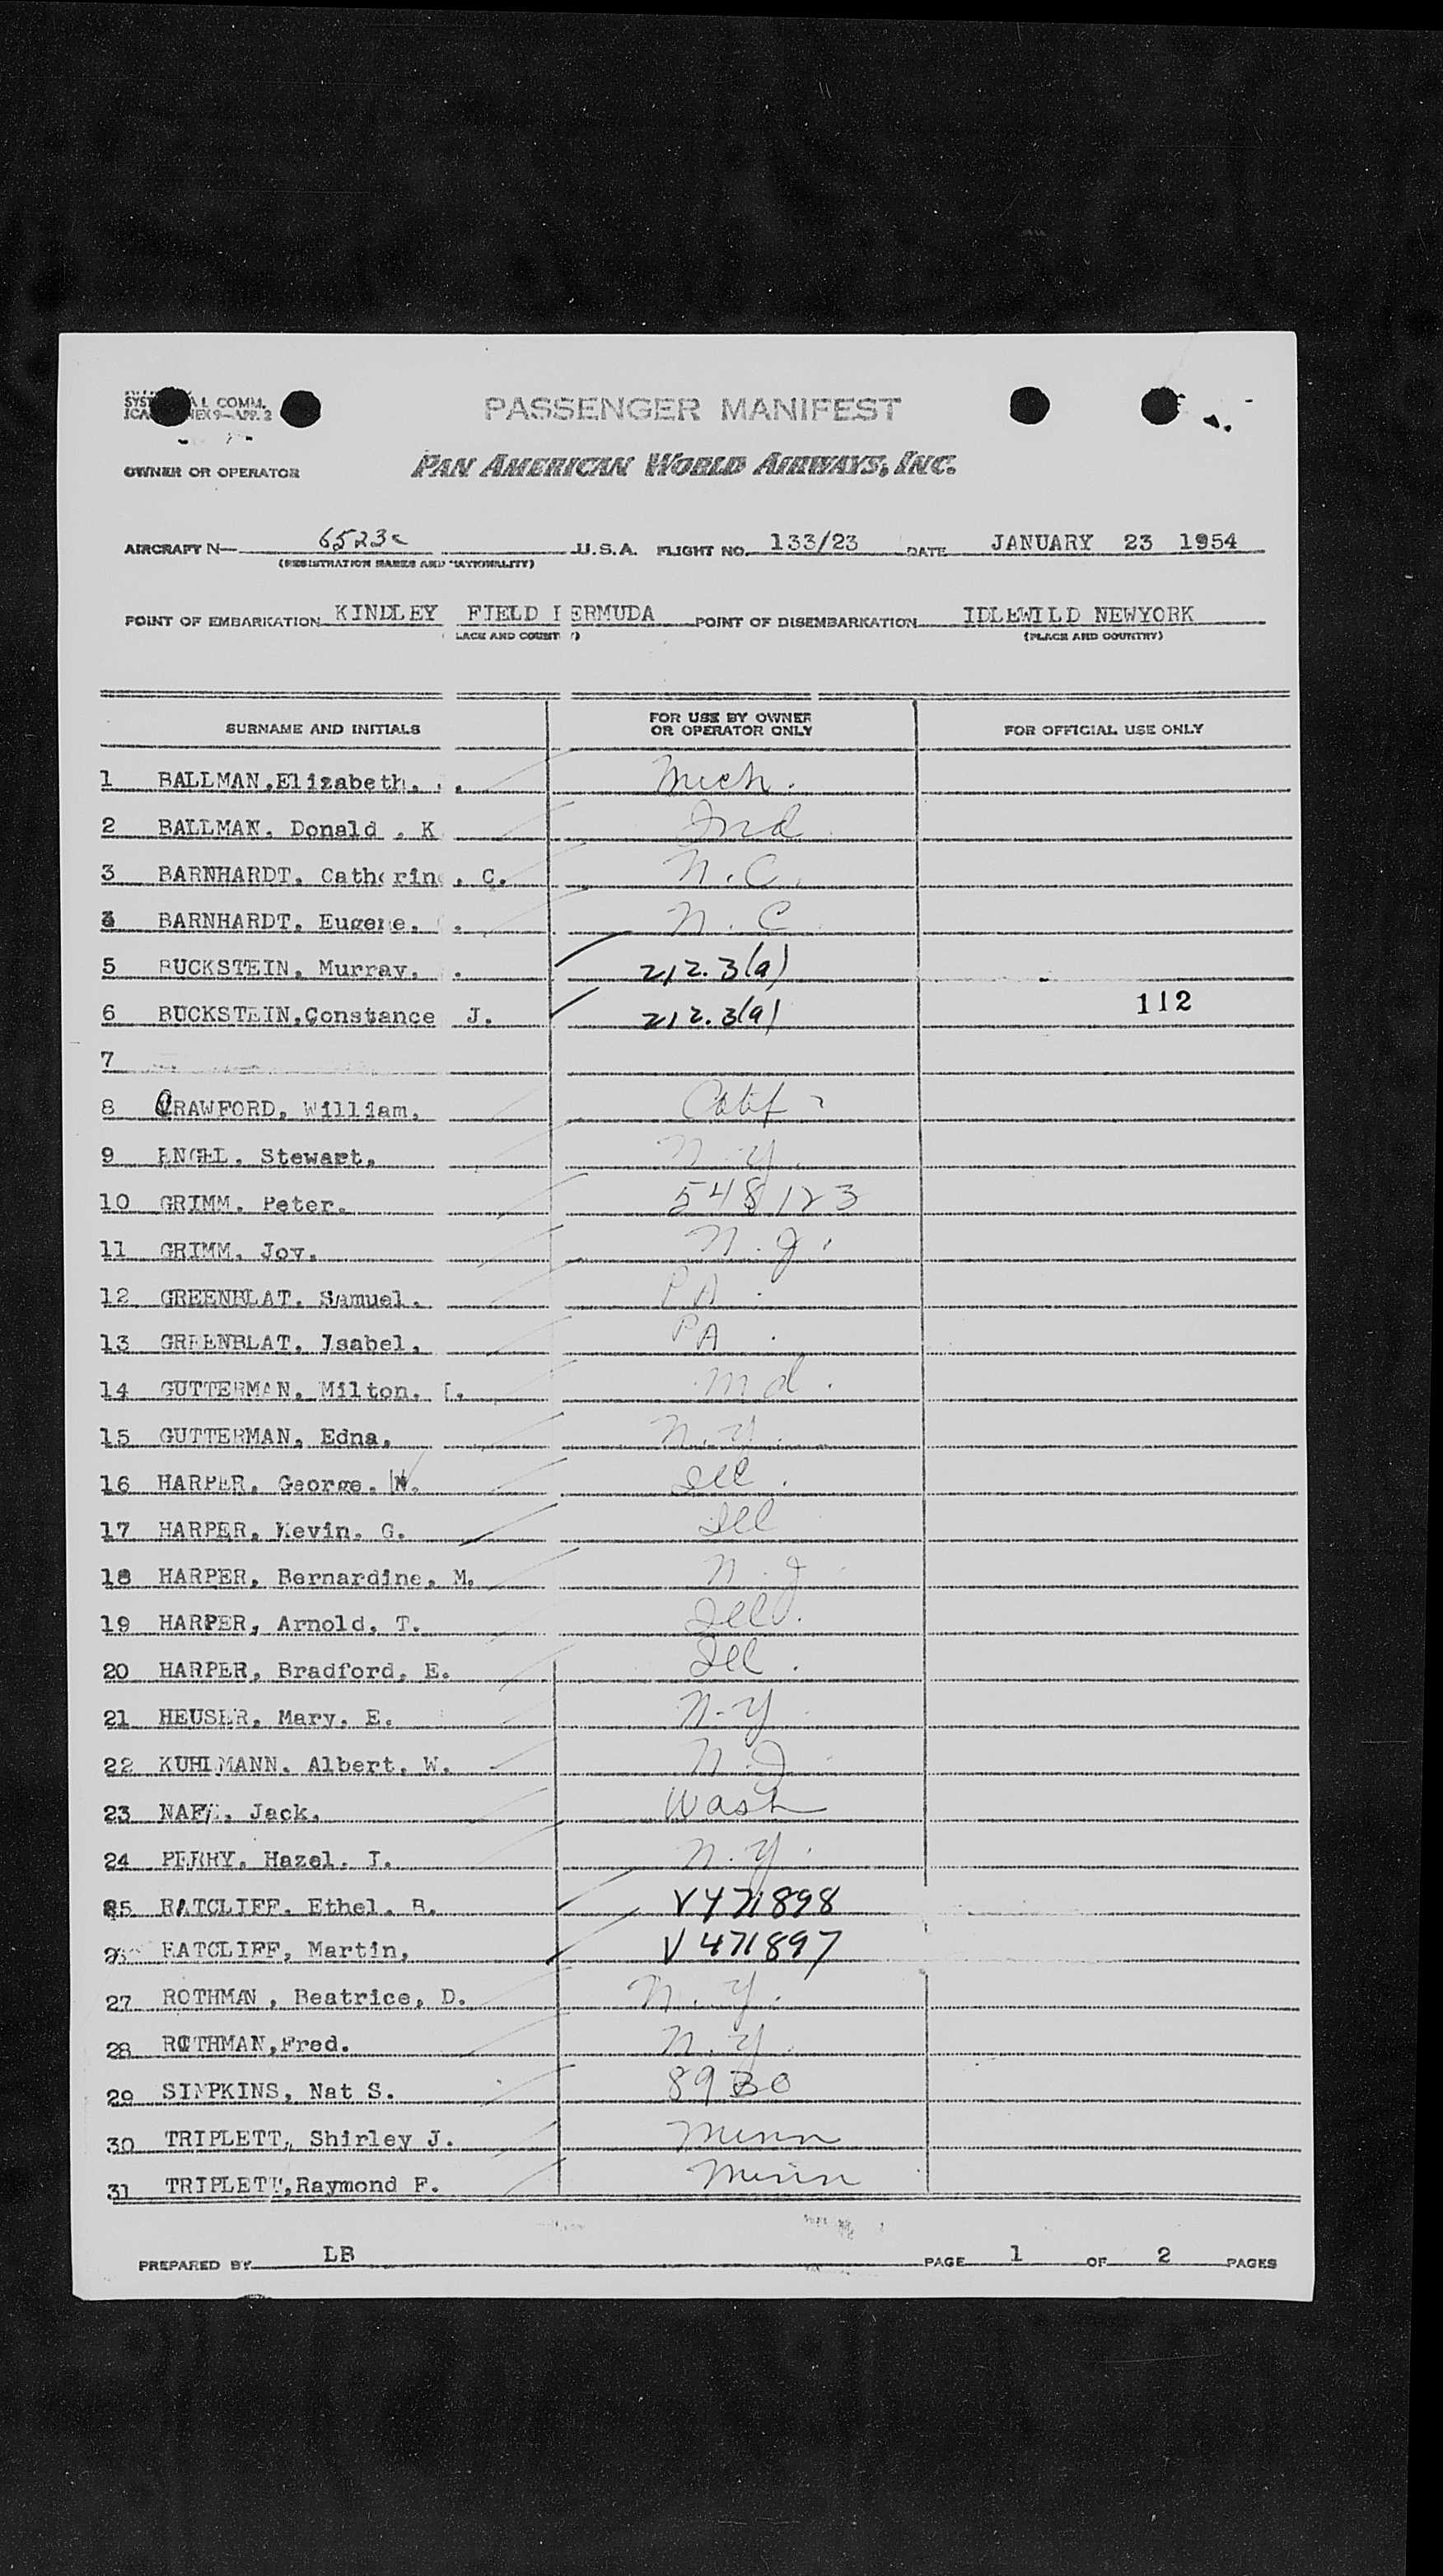 SYST A L COMM.
ICA NEX 9-APP. 2
PASSENGER MANIFEST
OWNER OR OPERATOR PAN AMERICAN WORLD AIRWAYS, INC.
AIRCRAFT N- 6523c U.S.A. FLIGHT NO. 133/23 DATE JANUARY 23 1954
(REGISTRATION MARKS AND NATIONALITY)
POINT OF EMBARKATION KINDLEY FIELD BERMUDA POINT OF DISEMBARKATION IDLEWILD NEWYORK
LACE AND COUNT ) (PLACE AND COUNTRY)
SURNAME AND INITIALS FOR USE BY OWNER OR OPERATOR ONLY FOR OFFICIAL USE ONLY
1 BALLMAN,Elizabeth. . Mich.
2 BALLMAN. Donald . K Ind
3 BARNHARDT. Catherin . C. N.C.
4 BARNHARDT. Eugene. . N.C
5 BUCKSTEIN. Murray. . 212.3(a)
6 BUCKSTEIN,Constance J. 212.3(a) 112
7
8 CRAWFORD. William. Calif
9 ENGEL. Stewart. N.Y.
10 GRIMM. Peter. 548123
11 GRIMM. Joy. N.J.
12 GREENBLAT. Samuel. PA.
13 GREENBLAT. Isabel. PA.
14 GUTTERMAN. Milton. I. Md.
15 GUTTERMAN. Edna. N.Y.
16 HARPER. George. W. Ill.
17 HARPER. Kevin. G. Ill
18 HARPER. Bernardine. M. N.J
19 HARPER, Arnold. T. Ill.
20 HARPER, Bradford. E. Ill.
21 HEUSER. Mary. E. N-Y
22 KUHLMANN. Albert. W. N.J
23 Jack. Wash
24 PERRY. Hazel. I. N.Y.
25 RATCLIFF. Ethel. B. V471898
26 RATCLIFF, Martin, V471897
27 ROTHMAN , Beatrice, D. N.Y.
28 ROTHMAN,Fred. N.Y.
29 SIMPKINS, Nat S. 8930
30 TRIPLETT, Shirley J. Minn
31 TRIPLETT,Raymond F. Minn
PREPARED BY LB PAGE 1 OF 2 PAGES